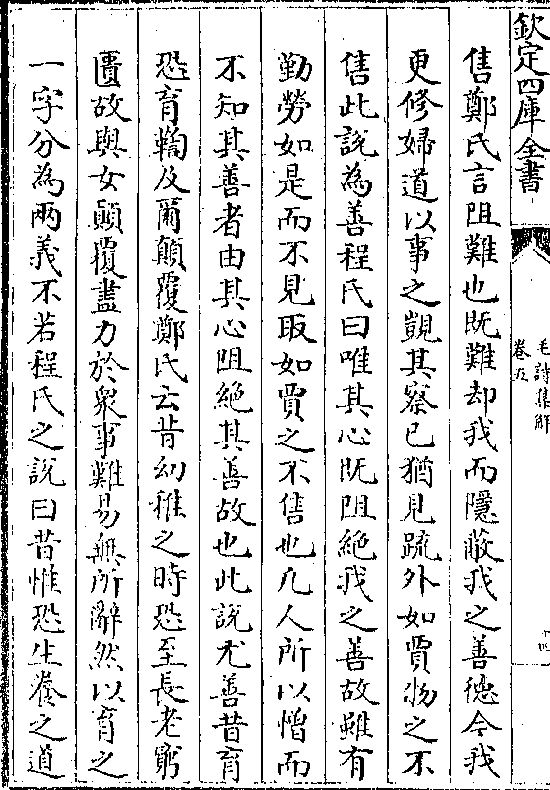 欽定四庫全書
毛詩集解
卷五
十四
售鄭氏言阻難也既難却我而隱蔽我之善德今我
更修婦道以事之覬其察已猶見疏外如賈物之不
售此說為善程氏曰唯其心既阻絶我之善故雖有
勤勞如是而不見取如賈之不售也凡人所以憎而
不知其善者由其心阻絶其善故也此說尤善昔育
恐育鞫及爾顛覆鄭氏云昔幼稚之時恐至長老窮
匱故與女顛覆盡力於衆事難易無所辭然以育之
一字分為兩義不若程氏之說曰昔惟恐生養之道